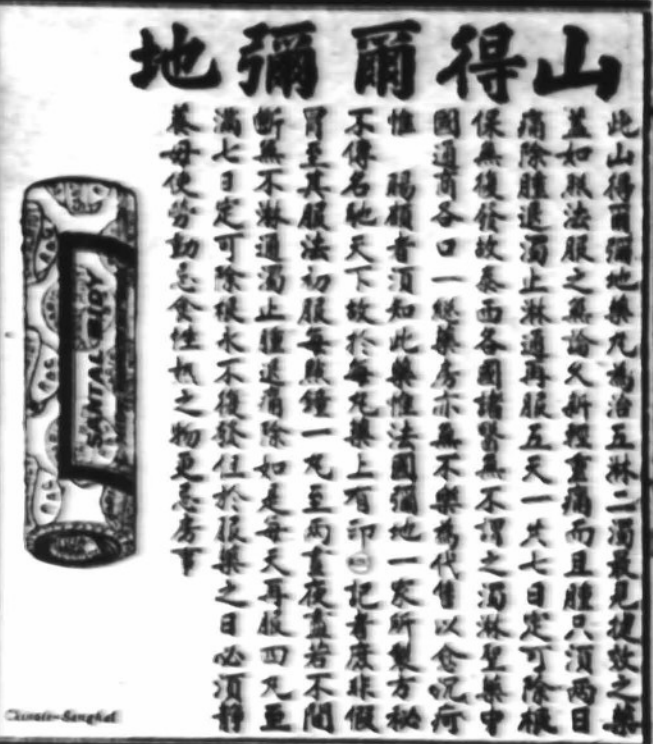 山得爾彌地
此山得爾彌地藥丸為治五淋二濁最見捷效之藥
蓋如照法服之無論久新輕重痛而且腫只須兩日
痛除腫退濁止淋通再服五天一共七日定可除根
保無復發故泰西各國諸醫無不謂之濁淋聖藥中
國通商各口一總藥房亦無不樂為代售以愈沉疴
惟 賜顧者須知此藥惟法國彌地一家所製方秘
不傳名馳天下故於每丸藥上有印 記者庶非假
冒至其服法初服每點鐘一丸至兩晝夜盡若不間
斷無不淋通濁止腫退痛除如是每天再服四丸至
滿七日定可除根永不復發住於服藥之日必須靜
養毋使勞動忌食性 之物更忌房事
SANTAL MIDY